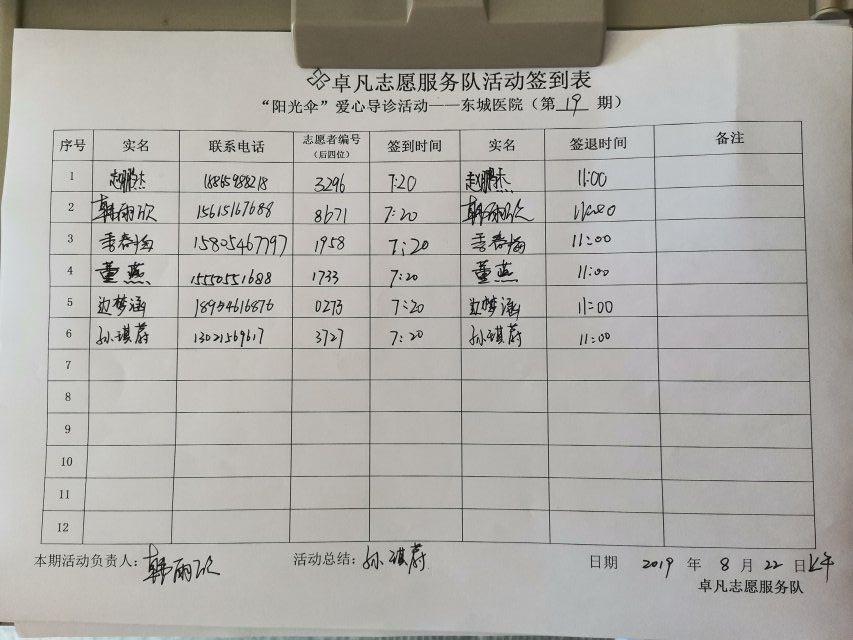 卓凡志愿服务队活动签到表
“阳光伞”爱心导诊活动——东城医院（第 19 期）
序号 实名 联系电话 志愿者编号（后四位） 签到时间 实名 签退时间 备注
1 赵鹏杰 3296 7:20 赵鹏杰 11:00
2 韩雨欣 15615167688 8671 7:20 韩雨欣 11:00
3 李春梅 15805467797 1958 7:20 李春梅 11:00
4 董燕 15550551688 1733 7:20 董燕 11:00
5 边梦涵 18954616876 0273 7:20 边梦涵 11:00
6 孙琪蔚 13021569617 3727 7:20 孙琪蔚 11:00
7
8
9
10
11
12
本期活动负责人：韩雨欣 活动总结：孙琪蔚 日期 2019 年 8 月 22 日上午
卓凡志愿服务队